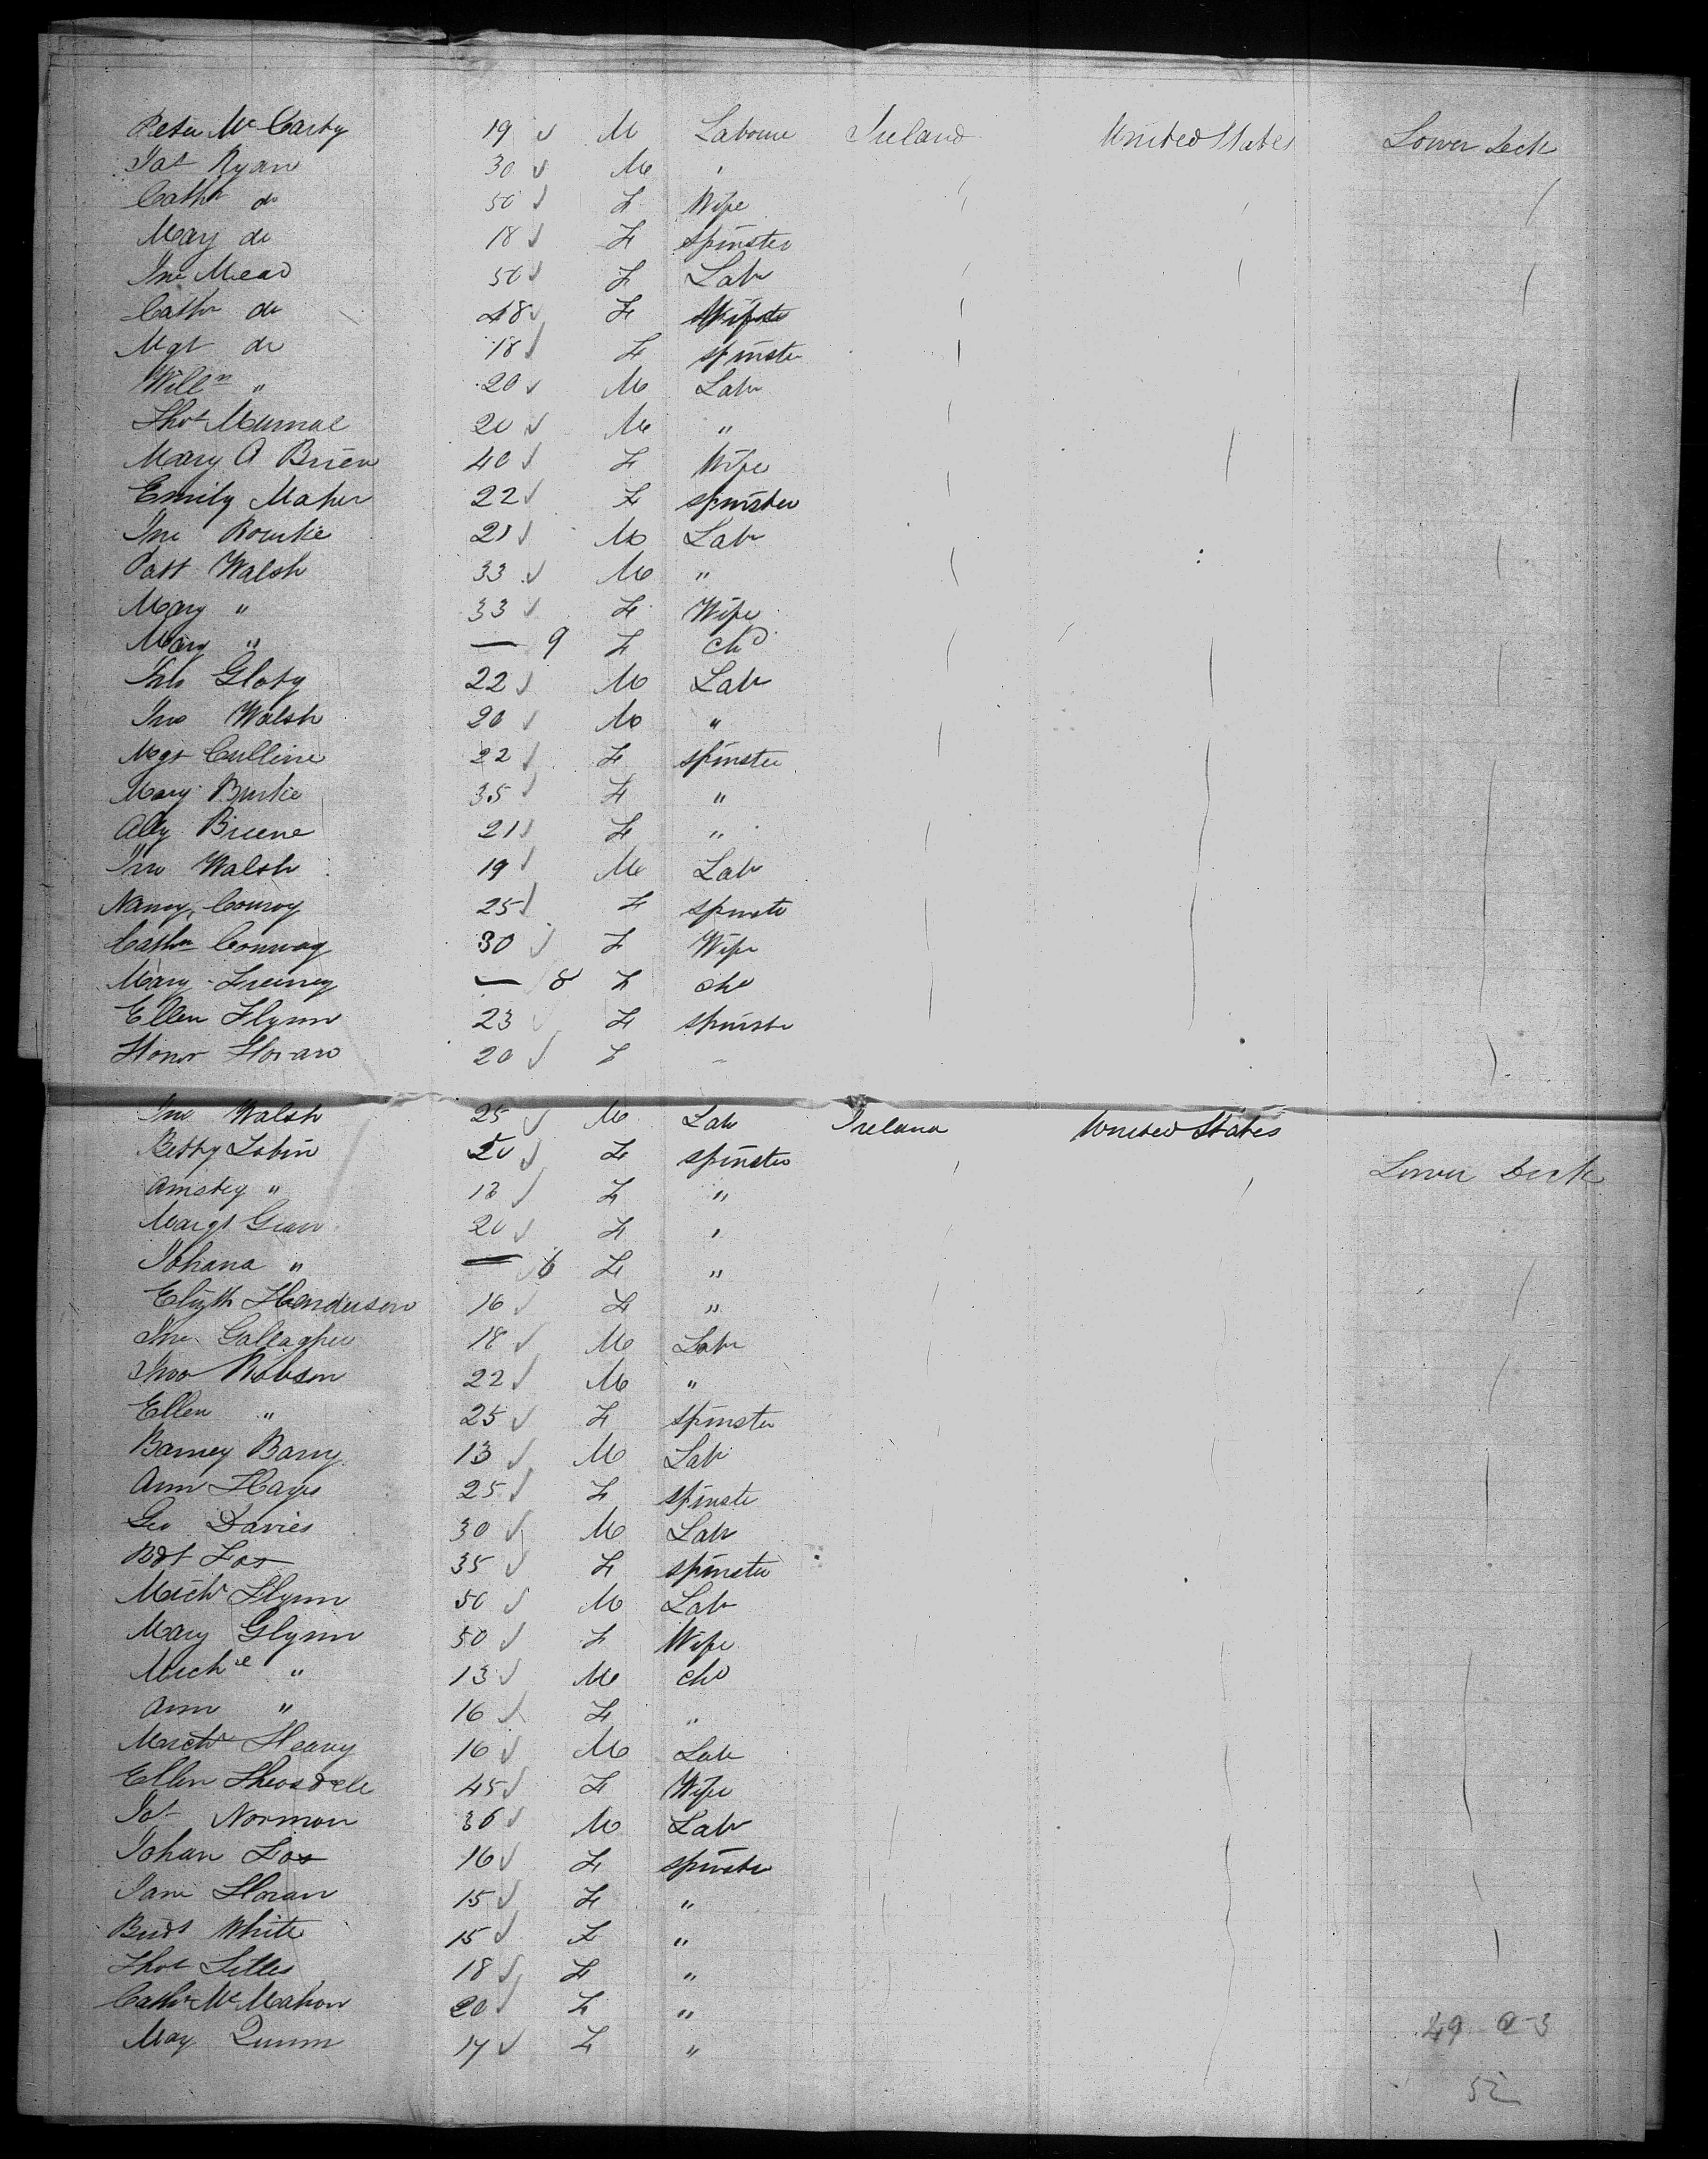 Peter McCarty 19 M Laboure Ireland United States Lower Deck
Pat Ryan 30 M "
Cathn do 50 F Wife
Mary do 18 F Spinster
Jno Mead 50 F Lab
Cathn do 48 F Wife
Mgt do 18 F spinster
Willm " 20 M Lab
Thos 20 M "
Mary A Brien 40 F Wife
Emily Maher 22 F spinster
Jno Rourke 21 M Lab
Patt Walsh 33 M "
Mary " 33 F Wife
Mary " — 9 F chd
22 M Lab
Jno Walsh 20 M "
Mgt Culline 22 F spinster
Mary Burke 35 F "
Ally Breene 21 F "
Jno Walsh 19 M Lab
Nancy Conroy 25 F spinster
Cathn Conway 30 F Wife
Mary — 8 F chd
Ellen Flynn 23 F spinster
Honor Horan 20 F
Jno Walsh 25 M Lab Ireland United States
Betty Tobin 20 F spinster Lower Deck
Amstey " 18 F "
Margt 20 F "
Johana " — 6 F "
Elizth Henderson 16 F "
Jno Gallagher 18 M Lab
Thos Robson 22 M "
Ellen " 25 F spinster
Barney Barry 13 M Lab
Ann Hayes 25 F spinster
Geo Davies 30 M Lab
Bdt Fox 35 F spinster
Michl Flynn 50 M Lab
Mary Glynn 50 F Wife
Michle " 13 M chd
Ann " 16 F "
Michl Heavy 16 M Lab
Ellen 45 F Wife
Jos Norman 36 M Lab
Johan Fox 16 F spinster
Jane Horan 15 F "
Bridt White 15 F "
Thos 18 F "
Cathn McMahon 20 F "
May Quinn 17 F "
49 @ 3
52